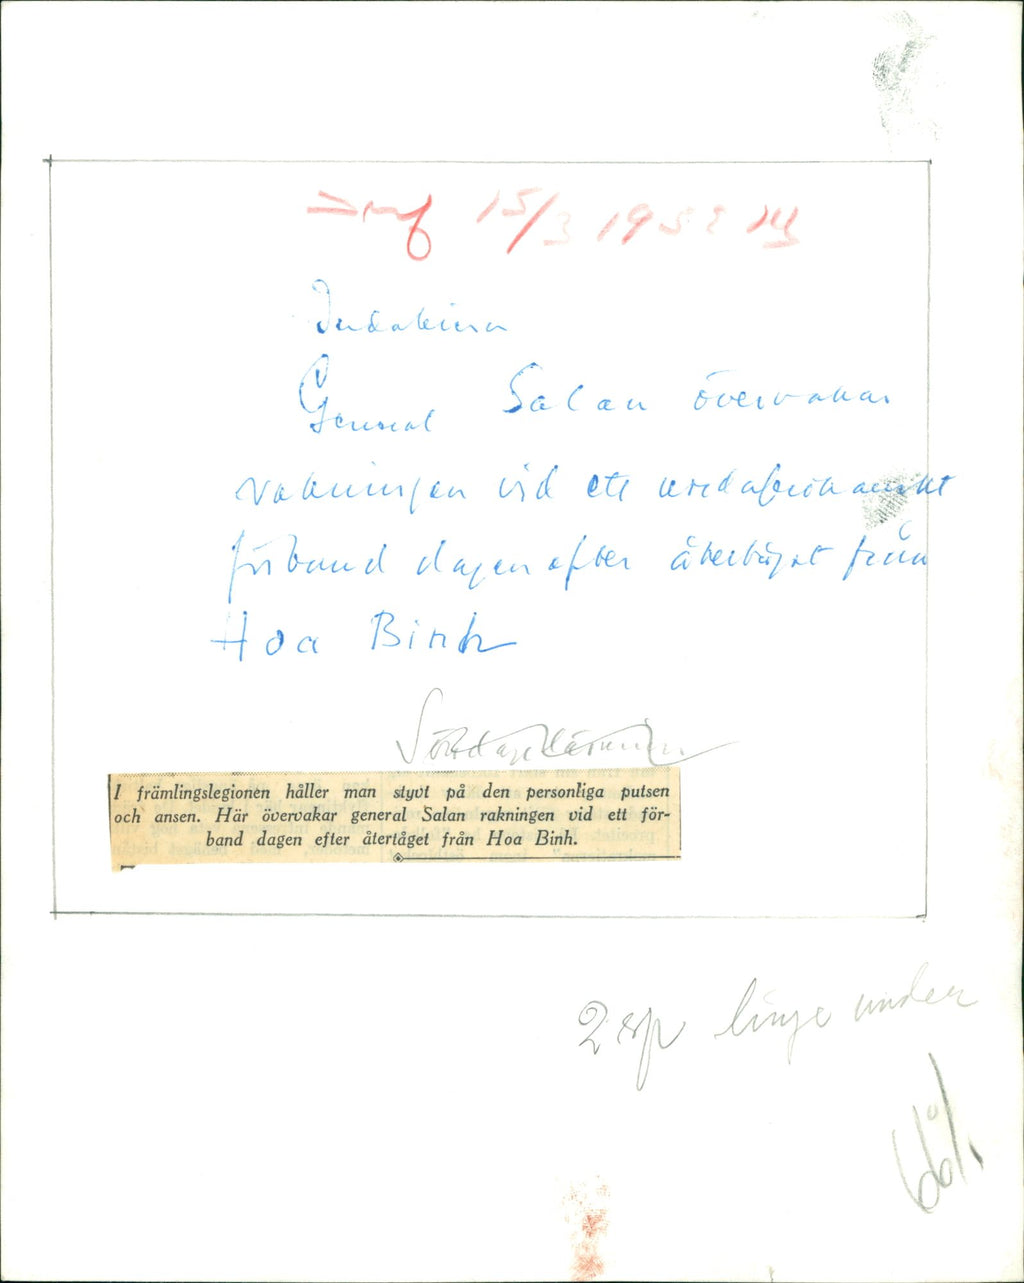 15/3 1952
Indokina
General Salan övervakar
rakningen vid ett nordafrikanskt
förband dagen efter återtåget från
Hoa Binh
I främlingslegionen håller man styvt på den personliga putsen
och ansen. Här övervakar general Salan rakningen vid ett för-
band dagen efter återtåget från Hoa Binh.
2 sp linje under
66%